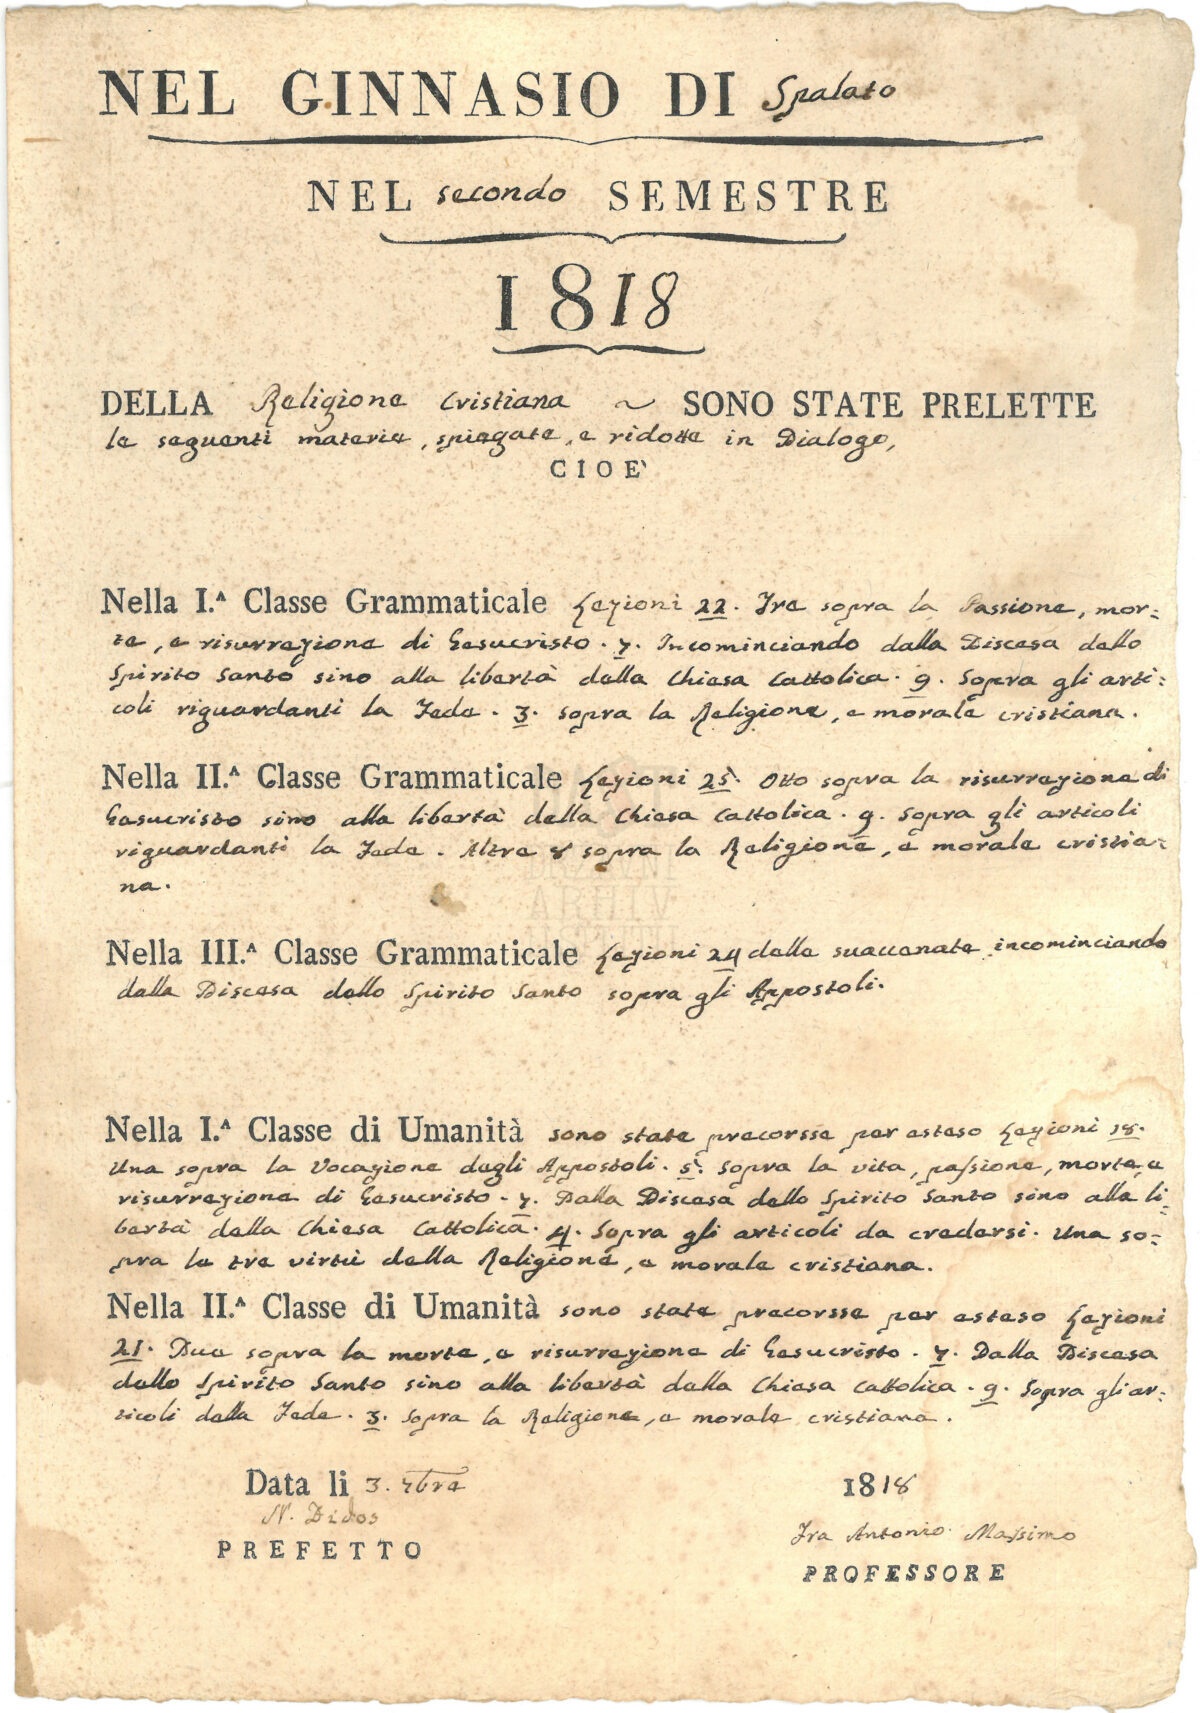 NEL GINNASIO DI Spalato
NEL secondo SEMESTRE
1818
DELLA Religione Cristiana ~ SONO STATE PRELETTE
le seguenti materie, spiegate, e ridotte in Dialogo,
CIOE'
Nella I.ᴬ Classe Grammaticale Lezioni 22. Tre sopra la Passione, mor-
te, e risurrezione di Gesucristo. 7. Incominciando dalla Discesa dello
Spirito Santo sino alla libertà della Chiesa Cattolica. 9. Sopra gli arti-
coli riguardanti la Fede. 3. sopra la Religione, e morale cristiana.
Nella II.ᴬ Classe Grammaticale Lezioni 25. Otto sopra la risurrezione di
Gesucristo sino alla libertà della Chiesa Cattolica. 9. Sopra gli articoli
riguardanti la Fede. Altre 8 sopra la Religione, e morale cristia-
na.
DRŽAVNI
ARHIV
Nella III.ᴬ Classe Grammaticale Lezioni 24 delle suaccenate incominciando
dalla Discesa dello Spirito Santo sopra gli Appostoli.
Nella I.ᴬ Classe di Umanità sono state precorsse per esteso Lezioni 18.
Una sopra la Vocazione degli Appostoli. 5. Sopra la vita, passione, morte, e
risurrezione di Gesucristo. 7. Dalla Discesa dello Spirito Santo sino alla li-
bertà della Chiesa Cattolica. 4. Sopra gli articoli da credersi. Una so-
pra le tre virtù della Religione, e morale cristiana.
Nella II.ᴬ Classe di Umanità sono state precorsse per esteso Lezioni
21. Due sopra la morte, e risurrezione di Gesucristo. 7. Dalla Discesa
dello Spirito Santo sino alla libertà della Chiesa Cattolica. 9. Sopra gli ar-
ticoli della Fede. 3. Sopra la Religione, e morale cristiana.
Data li 3. 7bre 1818
N. Didos
PREFETTO
Fra Antonio Massimo
PROFESSORE